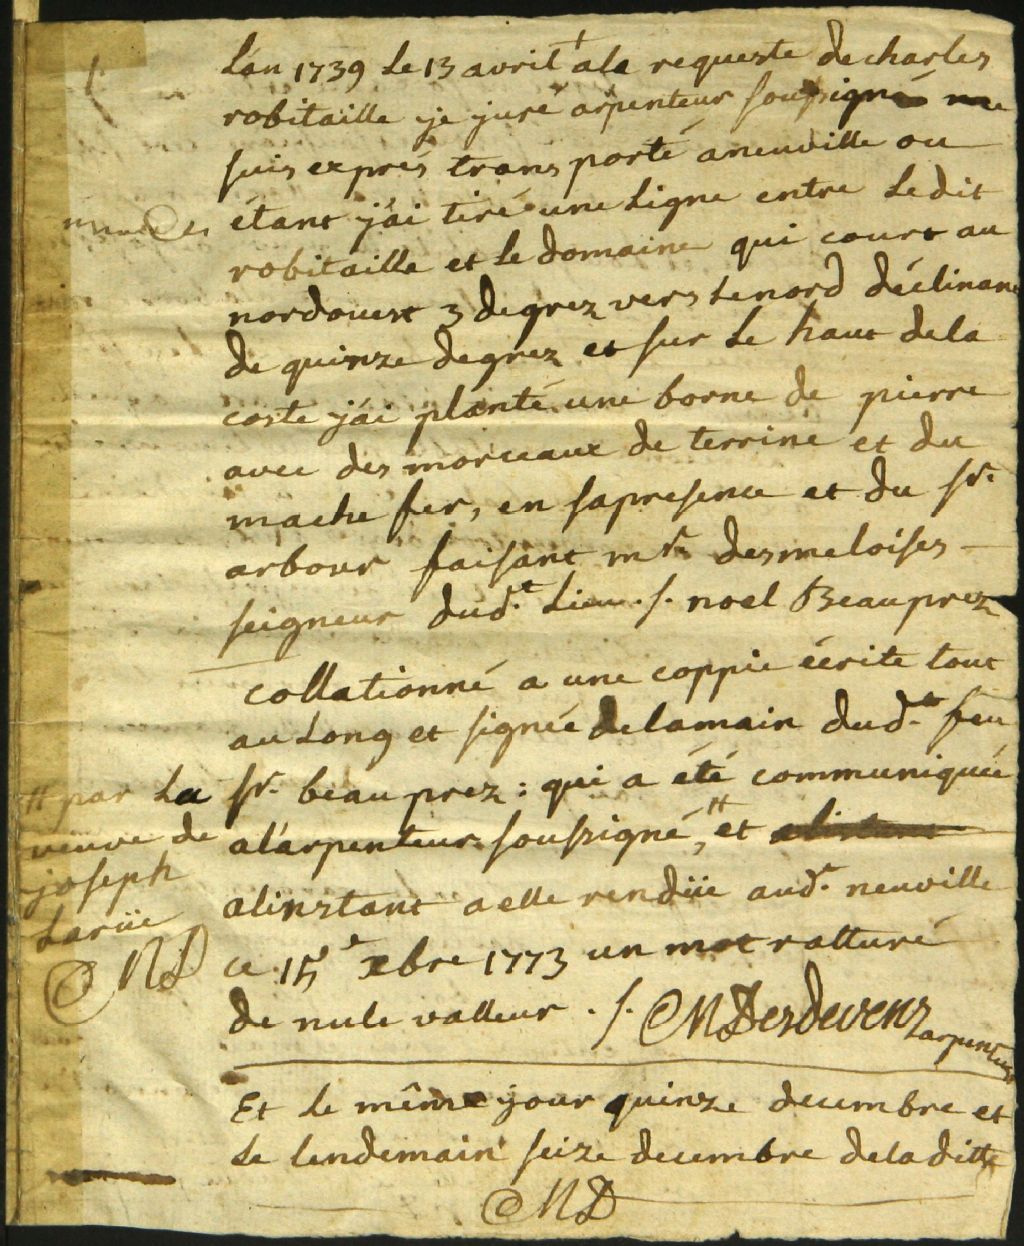 L'an 1739 Le 13 avril ala requeste de charles
robitaille je juré arpenteur soussigné me
suis exprés transporté aneuville ou
étant j'ai tiré une Ligne entre Ledit
robitaille et Le domaine qui court au
nordouest 3 degrez vers Lenord déclinant
de quinze degrez et sur Le haut dela
coste j'ai planté une borne de pierre
avec des morceaux de terrine et du
mache fer, en sapresence et du sr.
arbour faisant mr. desmeloises
seigneur dud.t Lieu ./. noel Beauprez
collationné a une coppie écrite tout
au Long et signée delamain dud.t feu
sr. beauprez : qui a été communiquée
alarpenteur soussigné, # et alinstant
alinstant a elle rendüe aud.t neuville
ce 15e xbre 1773 un mot ratturé
de nule valleur ./. MDesdevens
arpenteur
# par La
veuve de
joseph
Larüe
MD
Et Le même jour quinze decembre et
Le lendemain seize decembre deladitte
MD